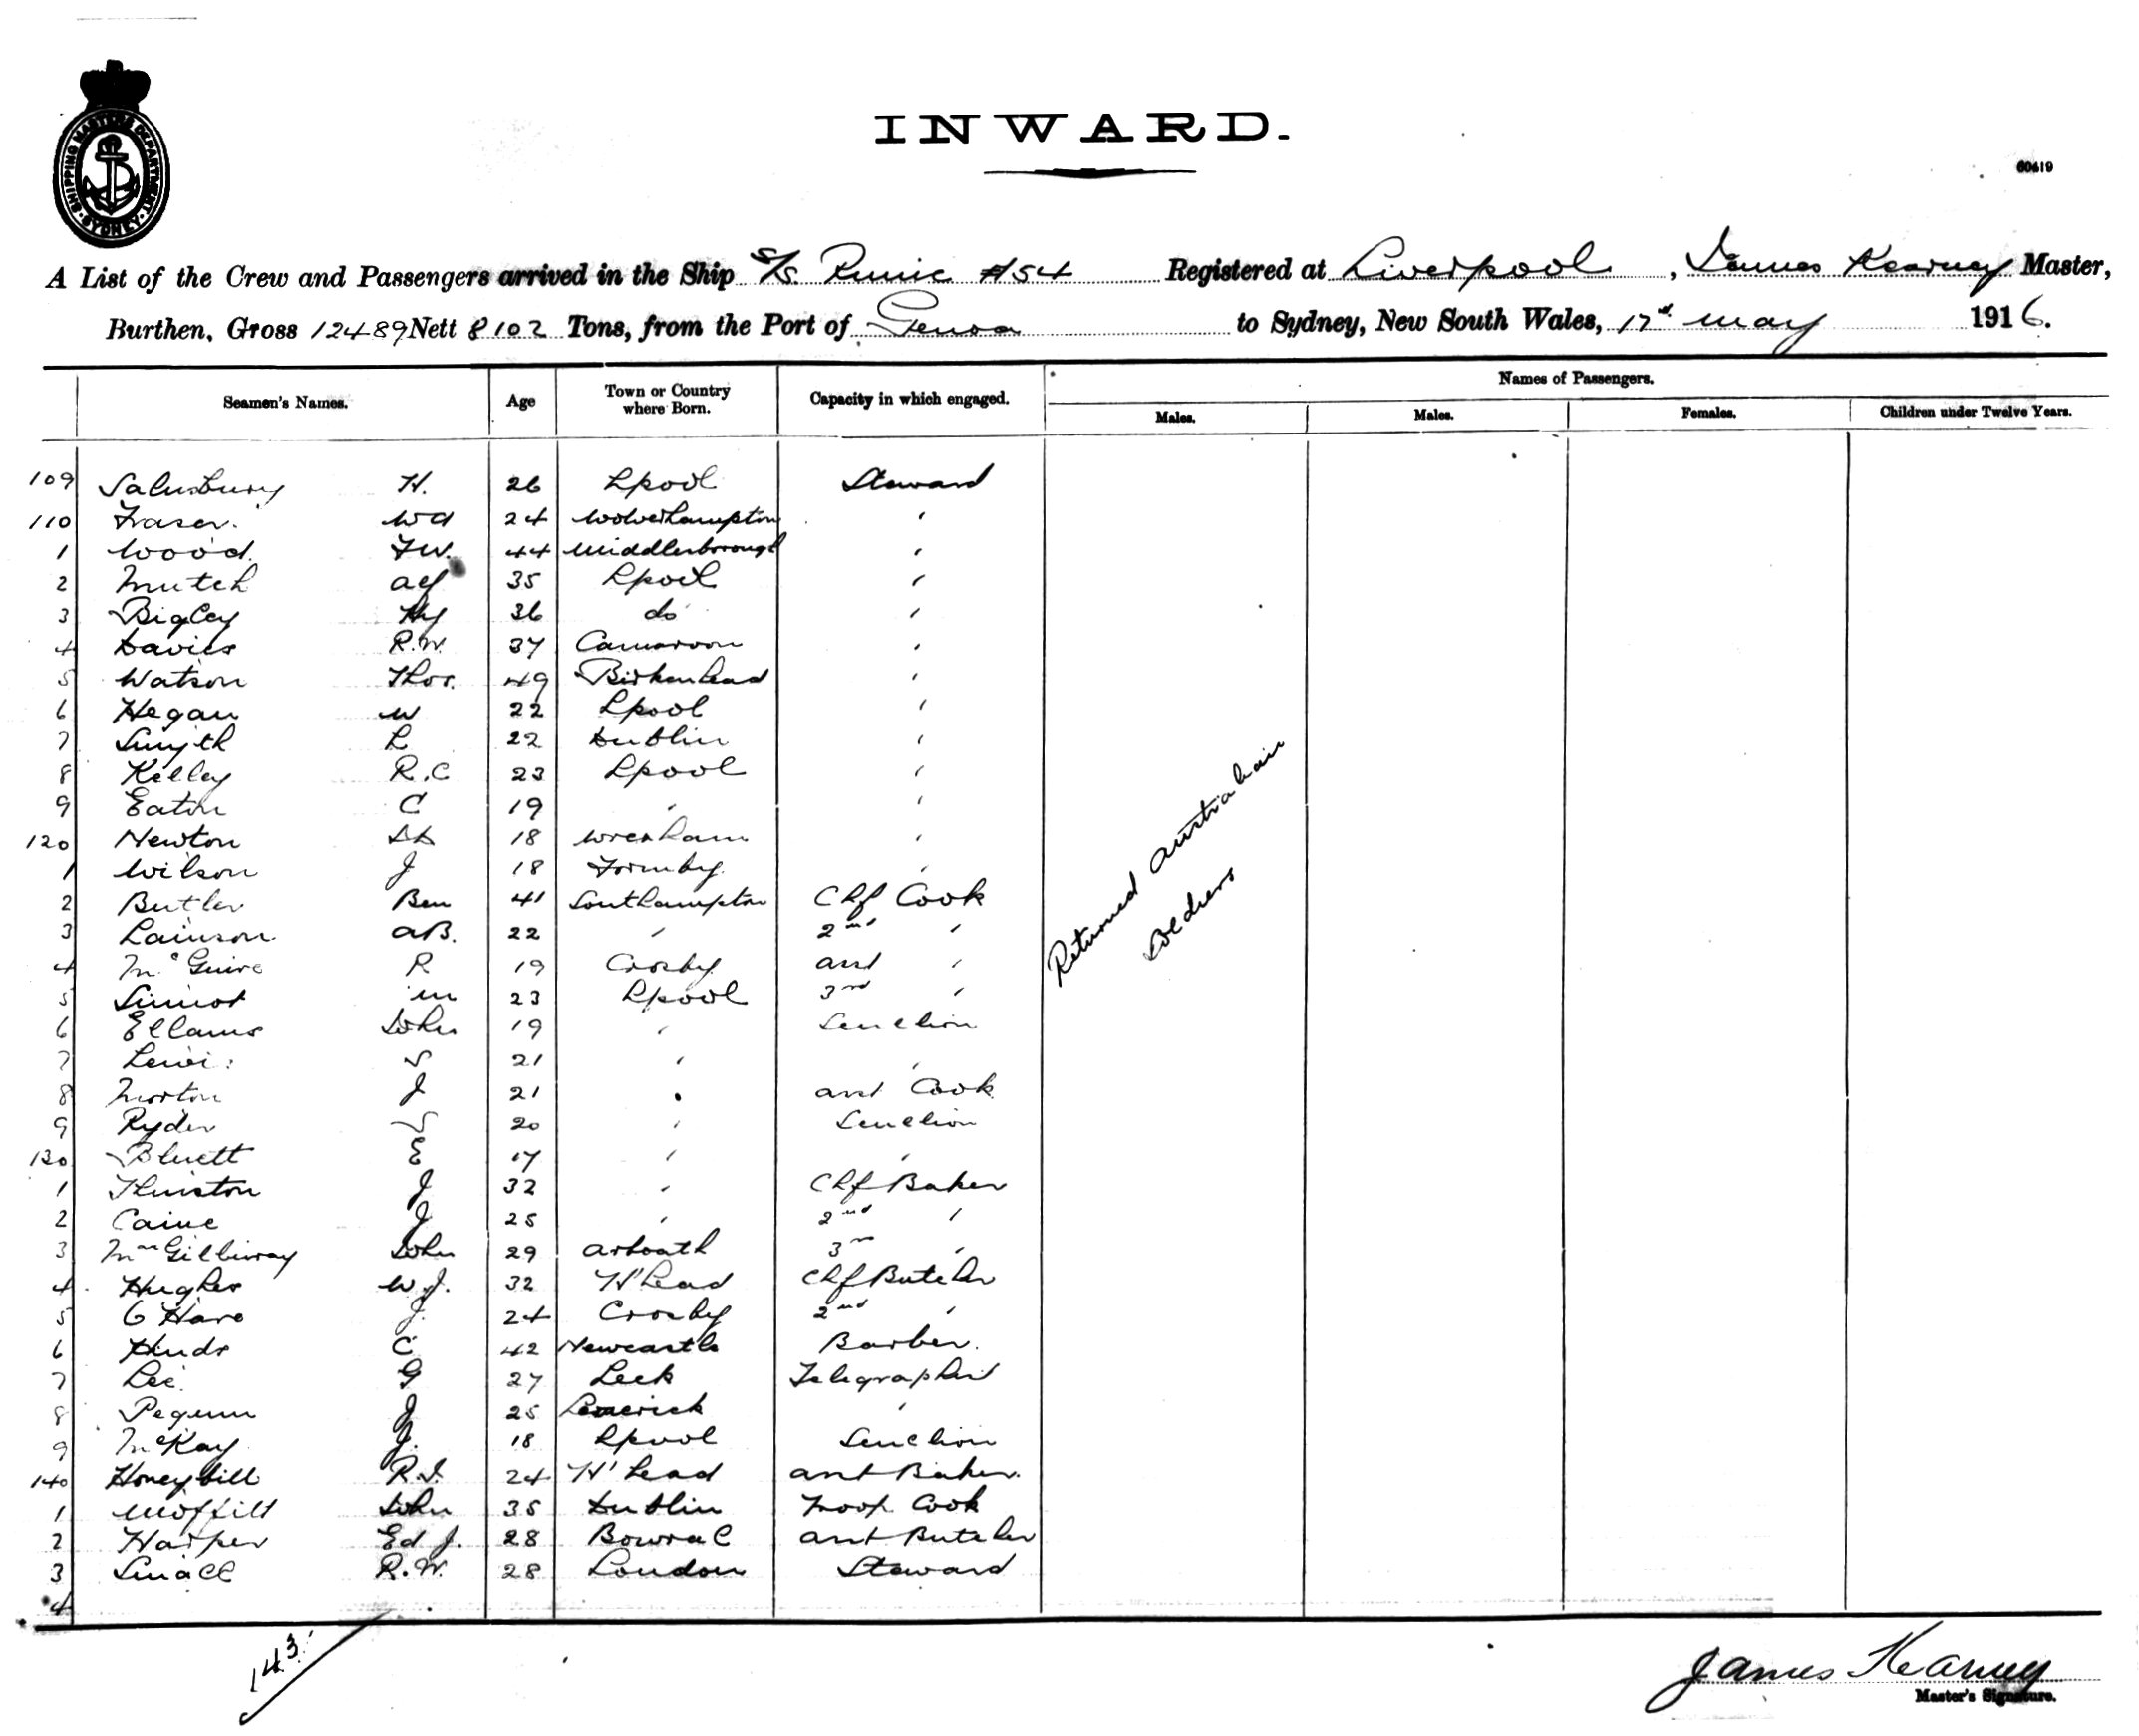 SHIPPING MASTERS DEPARTMENT · SYDNEY ·
INWARD.
60419
A List of the Crew and Passengers arrived in the Ship S/S. Runic A54 Registered at Liverpool, James Kearney Master,
Burthen, Gross 12489 Nett 8102 Tons, from the Port of Genoa to Sydney, New South Wales, 17th May 1916.
Seamen's Names. Age Town or Country where Born. Capacity in which engaged. Names of Passengers.
Males. Males. Females. Children under Twelve Years.
109 Salusbury H. 26 Lpool Steward
110 Fraser. Wd 24 Wolverhampton "
1 Wood. FW. 44 Middlesborough "
2 Mutch 35 Lpool "
3 Bigley Hy 36 do "
4 Davies R.W. 37 "
5 Watson Thos. 49 Birkenhead "
6 Hegan W 22 Lpool "
7 Smyth R 22 Dublin "
8 Kelley R.C 23 Lpool "
9 Eaton C 19 " "
120 Newton 18 Wrexham "
1 Wilson J 18 Formby "
2 Butler Ben 41 Southampton Chf Cook
3 Lainson AB. 22 " 2nd "
4 McGuire R 19 Crosby asst "
5 Sinnot M 23 Lpool 3rd "
6 Ellams John 19 " Scullion
7 Lewis S 21 " "
8 Morton J 21 " asst Cook
9 Ryder S 20 " Scullion
130 Bluett E 17 " "
1 Thurston J 32 " Chf Baker
2 Caine J 25 " 2nd "
3 MacGillivray John 29 Arbroath 3rd "
4 Hughes W.J. 32 H'head Chf Butcher
5 O Hare J. 24 Crosby 2nd "
6 Hinds C 42 Newcastle Barber.
7 Lee G 27 Leek Telegraphist
8 Pegum J 25 Limerick "
9 McKay J. 18 Lpool Scullion
140 Honeybill R.J. 24 H'head asst Baker.
1 Moffitt John 35 Dublin Troop Cook
2 Harper Ed J. 28 Bowral asst Butcher
3 Small R.W. 28 London Steward
4
Returned Australian
Soldiers
143
James Kearney
Master's Signature.